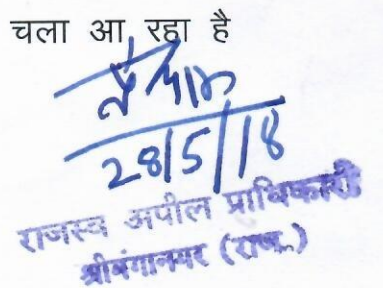 चला आ रहा है
28/5/18
राजस्व अपील प्राधिकारी
श्रीगंगानगर (राज.)